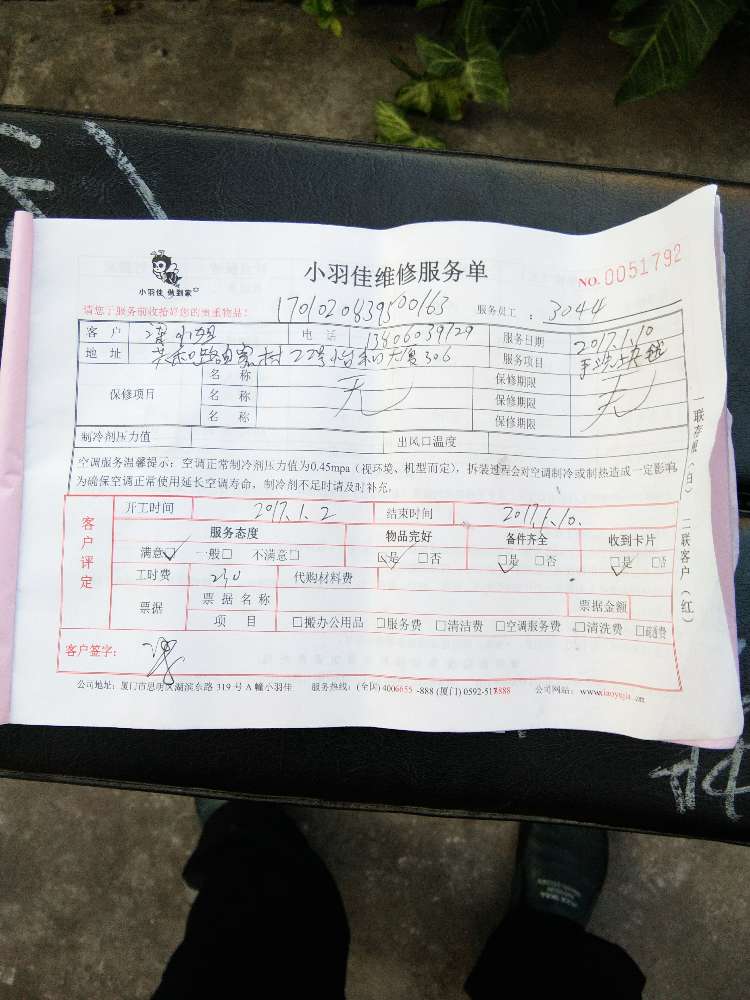 小羽佳维修服务单
NO.0051792
小羽佳 做到家
请您于服务前收拾好您的贵重物品!
1701020839500163
服务员工: 3044
客户 小姐 电话 13806039729 服务日期 2017.1.10
地址 村22号 306 服务项目
保修项目 名称 无 保修期限 无
名称 保修期限
名称 保修期限
制冷剂压力值 出风口温度
空调服务温馨提示:空调正常制冷剂压力值为0.45mpa(视环境、机型而定),拆装过程会对空调制冷或制热造成一定影响,
为确保空调正常使用延长空调寿命,制冷剂不足时请及时补充。
客户评定
开工时间 2017.1.2 结束时间 2017.1.10.
服务态度 物品完好 备件齐全 收到卡片
满意☑ 一般□ 不满意□ ☑是 □否 ☑是 □否 ☑是 □否
工时费 230 代购材料费
票据 票据名称 票据金额
项目 □搬办公用品 □服务费 □清洁费 □空调服务费 □清洗费 □疏通费
客户签字:
公司地址:厦门市思明区湖滨东路 319 号 A 幢小羽佳 服务热线:(全国)4006655-888 (厦门)0592-5178888 公司网站:www.xiaoyujia.com
一联存根(白) 二联客户(红)